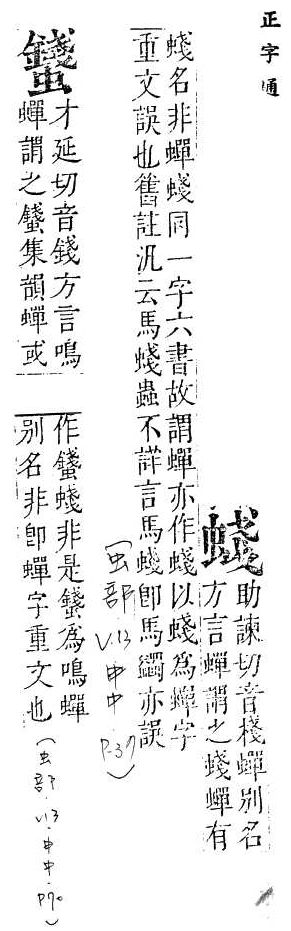 正字通
蝬助諫切音棧蟬別名
方言蟬謂之蝬蟬有
蝬名非蟬蝬同一字六書故謂蟬亦作蝬以蝬為蟬字
重文誤也舊註汎云馬蝬蟲不詳言馬蝬即馬蠲亦誤
(虫部.V.13.申中.P.37)
䥿才延切音錢方言鳴
蟬謂之䥿集韻蟬或
作䥿蝬非是䥿為鳴蟬
別名非即蟬字重文也
(虫部.V13.申中.P70)